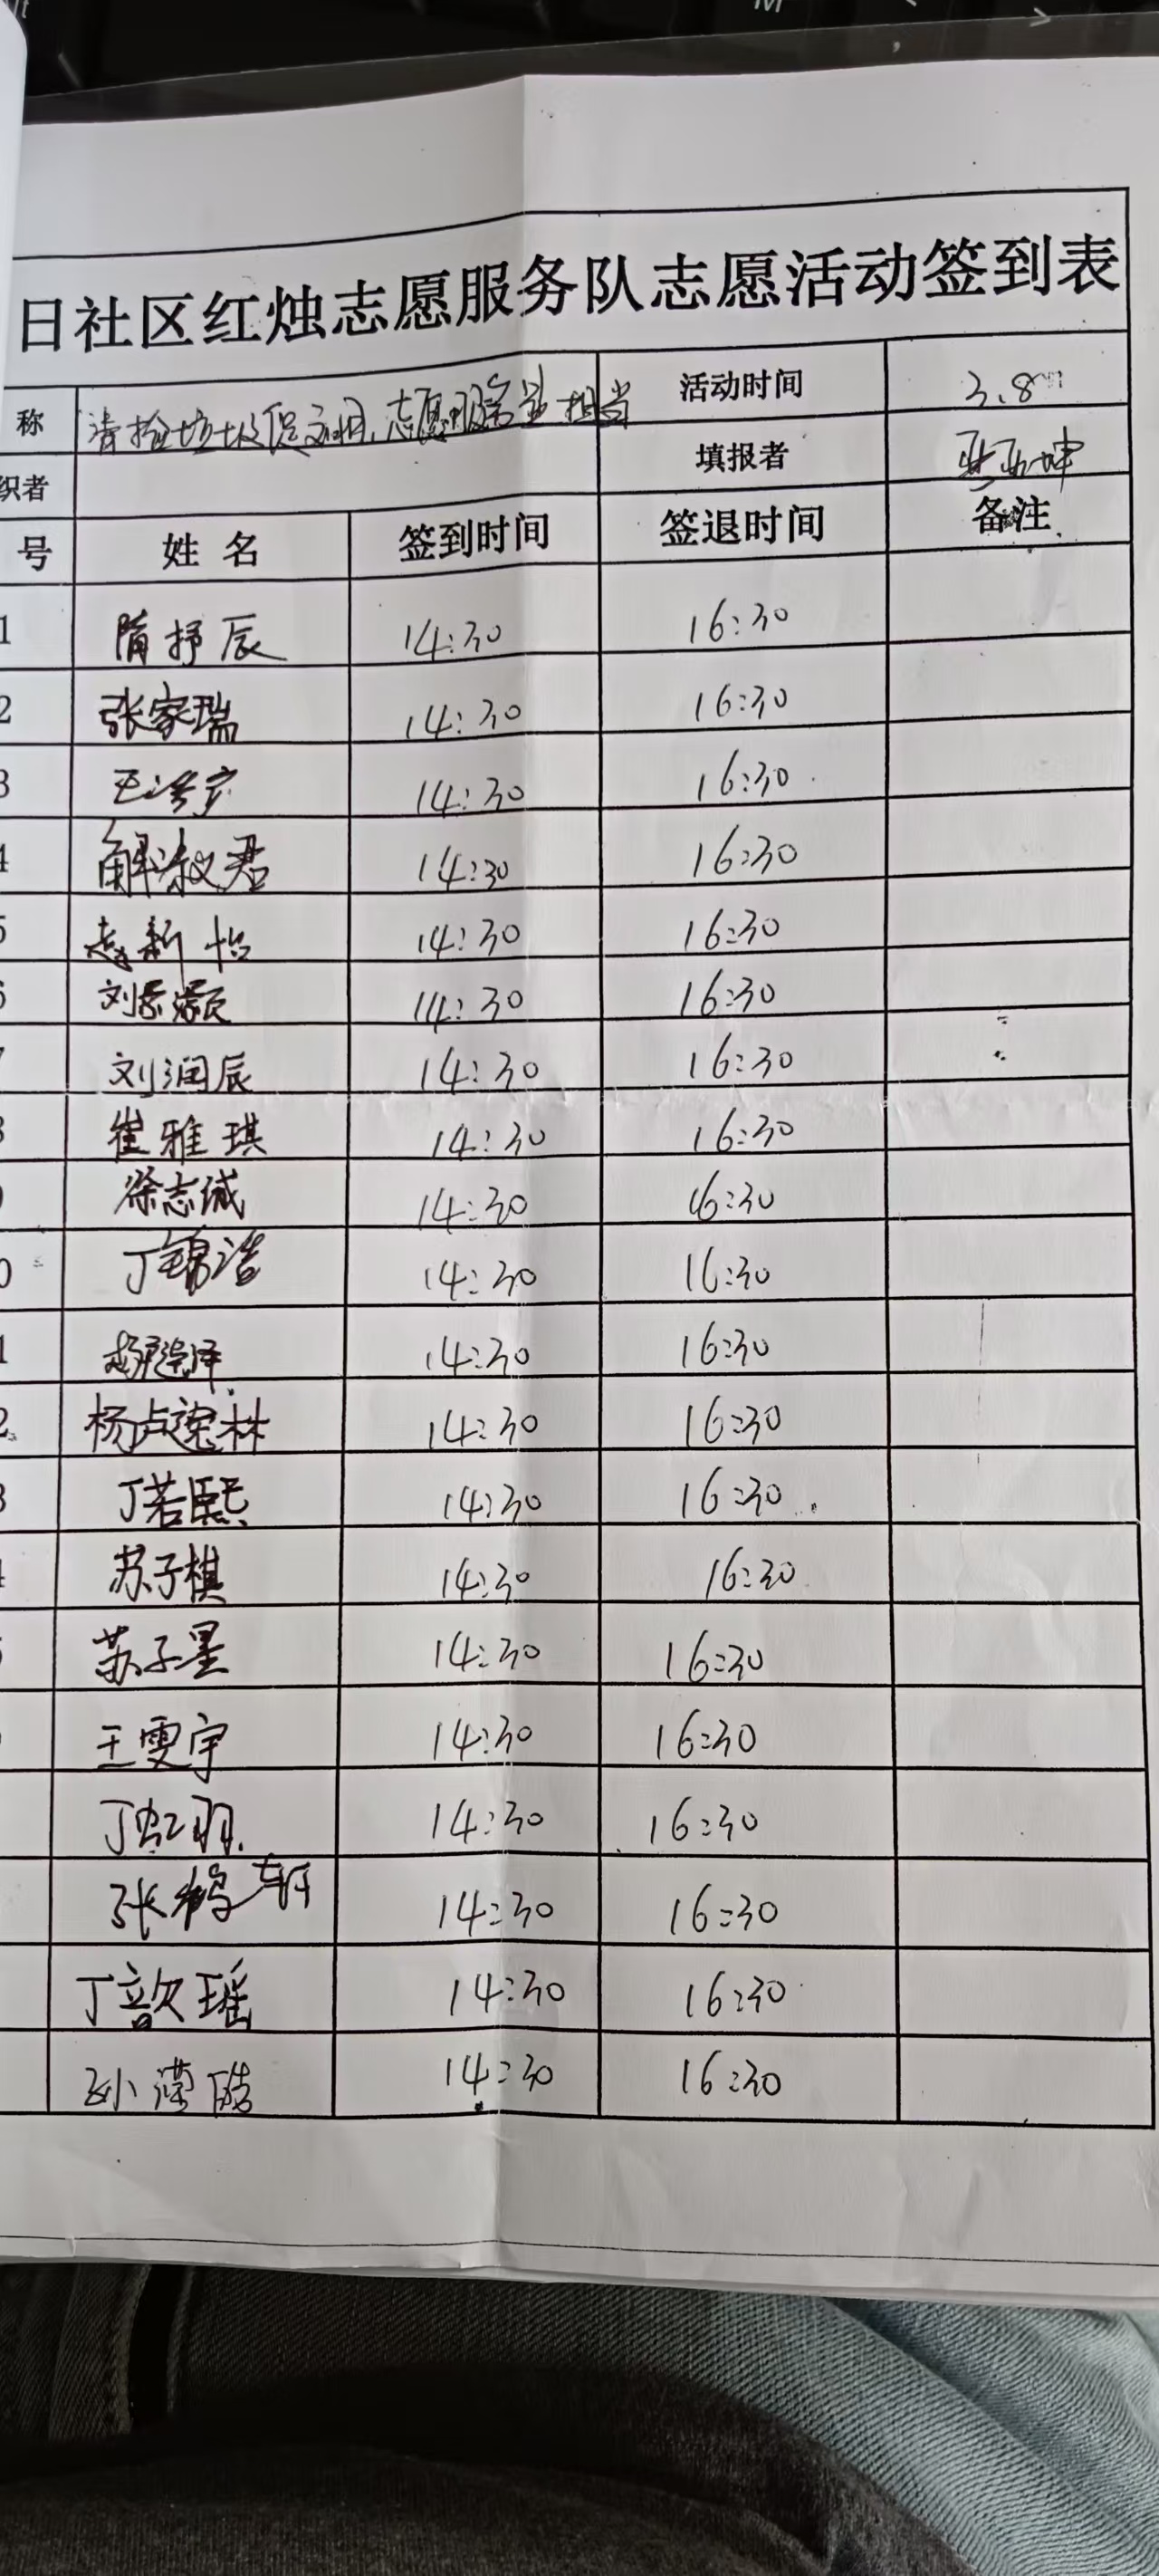 日社区红烛志愿服务队志愿活动签到表
称 清捡垃圾促文明,志愿服务显担当 活动时间 3.8
织者 填报者
号 姓名 签到时间 签退时间 备注
1 隋抒辰 14:30 16:30
2 张家瑞 14:30 16:30
3 王 14:30 16:30
4 解淑君 14:30 16:30
5 袁新怡 14:30 16:30
6 刘景灏 14:30 16:30
7 刘润辰 14:30 16:30
8 崔雅琪 14:30 16:30
徐志诚 14:30 16:30
0 丁锦浩 14:30 16:30
1 14:30 16:30
2 杨卢逸林 14:30 16:30
3 丁若熙 14:30 16:30
苏子棋 14:30 16:30
苏子星 14:30 16:30
王雯宇 14:30 16:30
丁虹羽 14:30 16:30
张鹤轩 14:30 16:30
丁歆瑶 14:30 16:30
孙滢皓 14:30 16:30